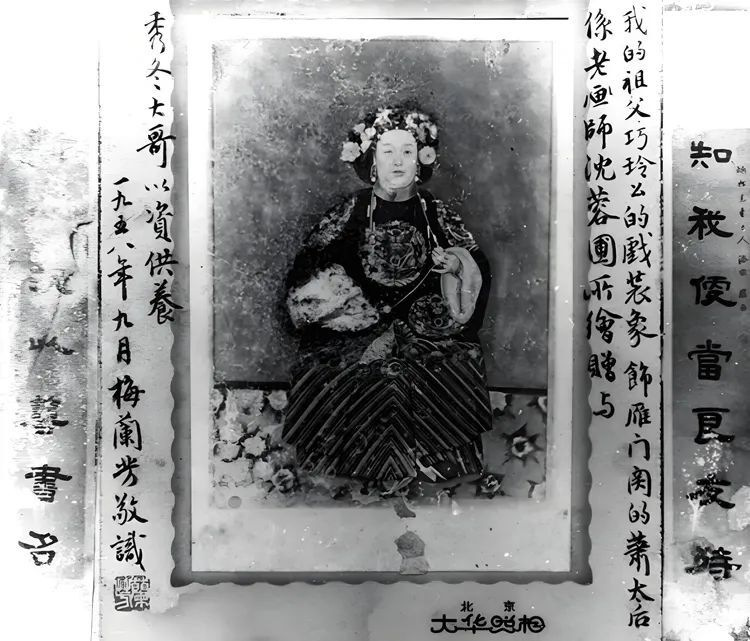 知我便當良友
我的祖父巧玲公的戲裝象 飾雁门関的蕭太后
係老画師沈蓉圃所繪贈与
秀冬大哥以資供養
一九五八年九月梅蘭芳敬識
書名
北京
大华照相